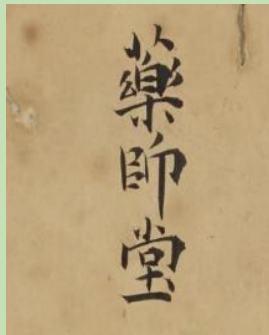 藥師堂